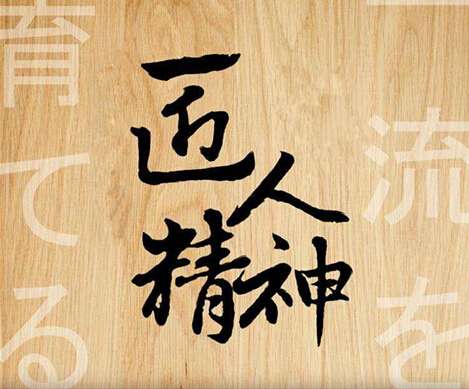 匠人
精神
一流を
育てる